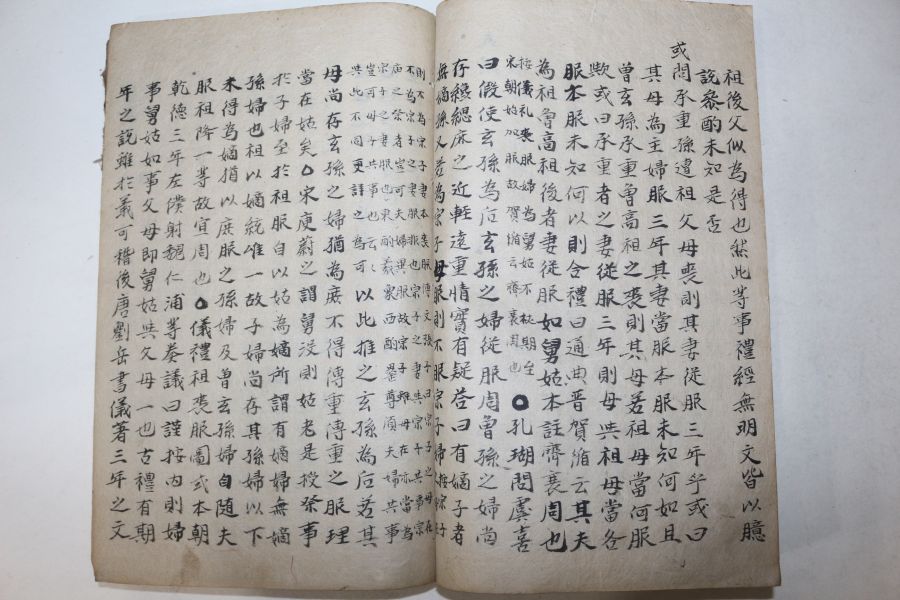 祖後父似為得也然此等事禮經無明文皆以臆
說參酌未知是否
或問承重孫遭祖父母喪則其妻從服三年乎或曰
其母為主婦服三年其妻當服本服未知何如且
曾玄孫承重曾高祖之喪則其母若祖母當何服
歟或曰承重者之妻從服三年則母與祖母當各
服本服未知何以則合禮曰通典晉賀循云其夫
為祖曾高祖後者妻從服如舅姑本註齊衰周也
按儀礼喪服婦為舅姑不杖期至
宋朝始加服故賀循云齊衰周也
孔瑚問虞喜
曰假使玄孫為后玄孫之婦從服周曾孫之婦尚
存纔緦麻之近輕遠重情實有疑答曰有嫡子者
無嫡孫又若為宗子母服則不服宗子婦按宗子
母尚存玄孫之婦猶為庶不得傳重傳重之服理
當在姑矣宋庾蔚之謂舅沒則姑老是授祭事
於子婦至於祖服自以姑為嫡所謂有嫡婦無嫡
孫婦也祖以嫡統唯一故子婦尚存其孫婦以下
未得為嫡猶以庶服之孫婦及曾玄孫婦自隨夫
服祖降一等故宜周也儀禮祖喪服圖式本朝
乾德三年左僕射魏仁浦等奏議曰謹按內則婦
事舅姑如事父母即舅姑與父母一也古禮有期
年之說雖於義可稽後唐劉岳書儀著三年之文